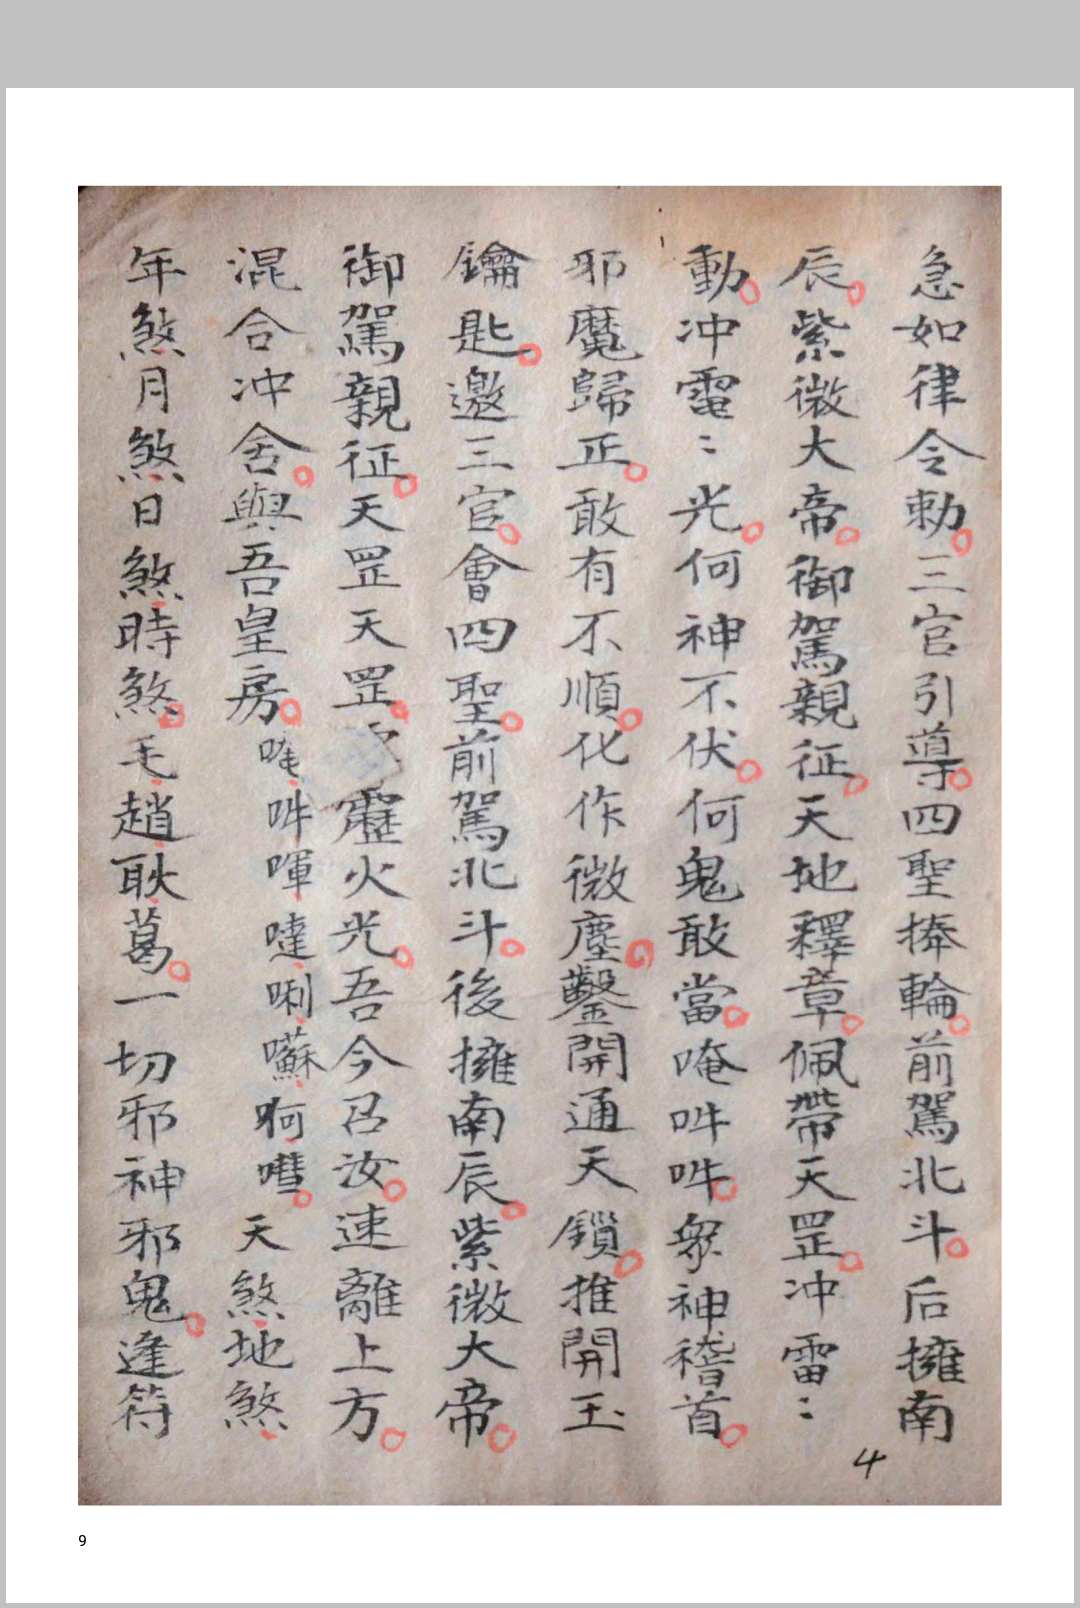 急如律令勅三官引導四聖捧輪前駕北斗后擁南
辰紫微大帝御駕親征天地釋章佩帶天罡冲雷：
動冲電：光何神不伏何鬼敢當唵吽吽衆神稽首
邪魔歸正敢有不順化作微塵鑿開通天鎖推開玉
鑰匙邀三官會四聖前駕北斗後擁南辰紫微大帝
御駕親征天罡天罡靂火光吾今召汝速離上方
混合冲舍與吾皇房唵吽㖮噠唎囌啊天煞地煞
年煞月煞日煞時煞毛趙耿葛一切邪神邪鬼逢符
4
9